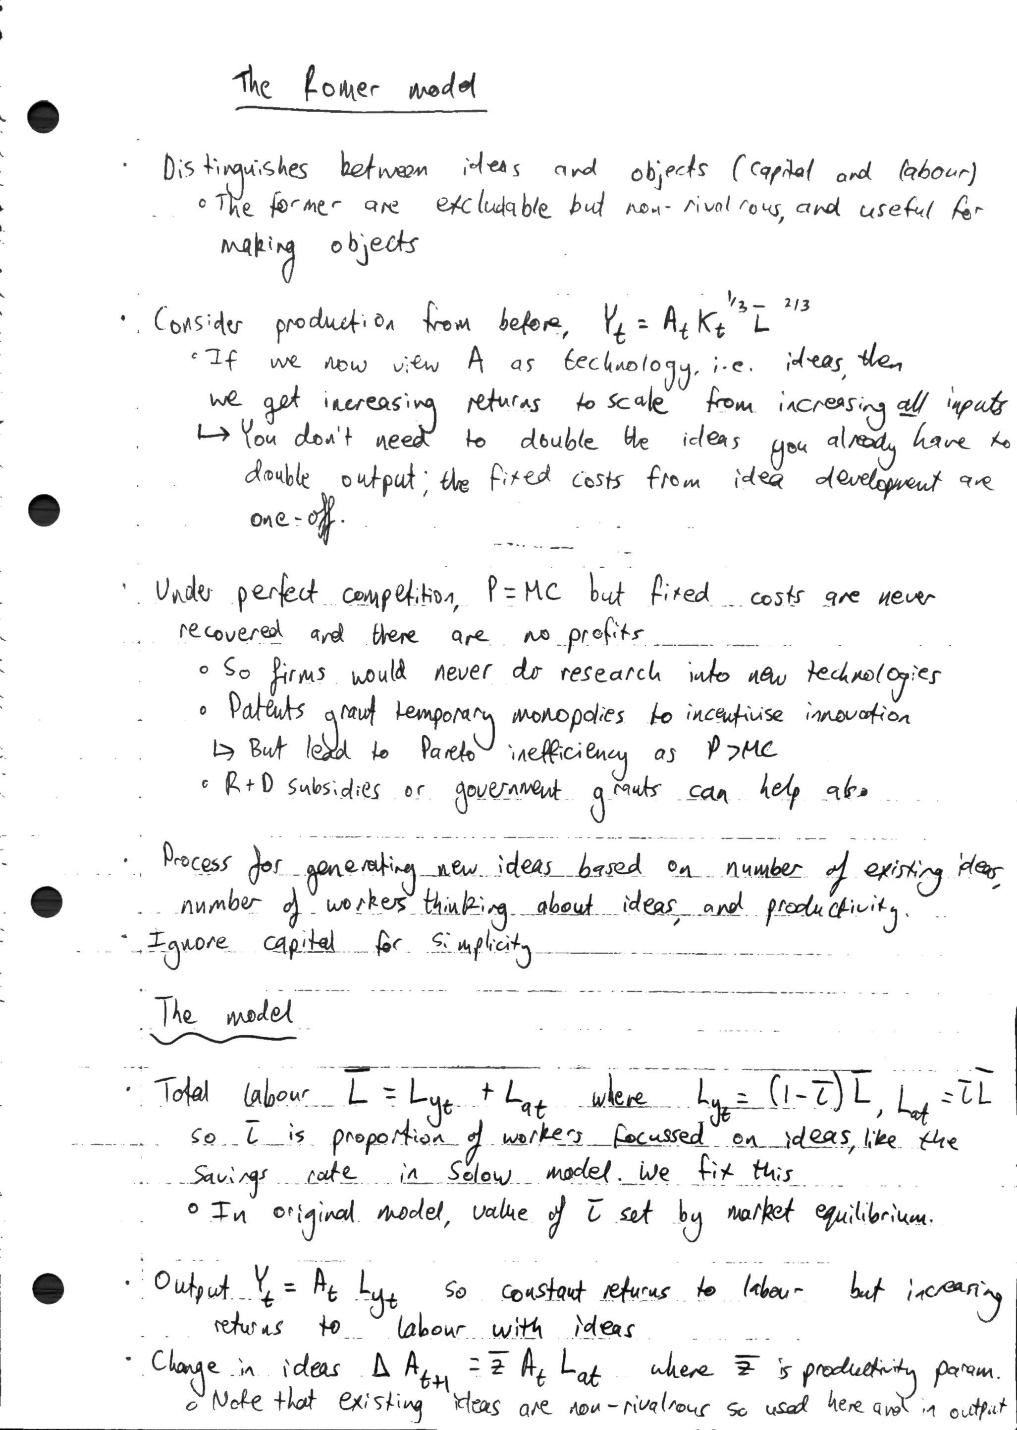 The Romer model
· Distinguishes between ideas and objects (capital and labour)
∘ The former are excludable but non-rivalrous, and useful for
making objects
· Consider production from before, Y_t = A_t K_t^{1/3} L̄^{2/3}
∘ If we now view A as technology, i.e. ideas, then
we get increasing returns to scale from increasing all inputs
↳ You don't need to double the ideas you already have to
double output; the fixed costs from idea development are
one-off.
· Under perfect competition, P = MC but fixed costs are never
recovered and there are no profits
∘ So firms would never do research into new technologies
∘ Patents grant temporary monopolies to incentivise innovation
↳ But lead to Pareto inefficiency as P > MC
∘ R+D subsidies or government grants can help also
· Process for generating new ideas based on number of existing ideas,
number of workers thinking about ideas, and productivity.
· Ignore capital for simplicity
The model
· Total labour L̄ = L_{yt} + L_{at} where L_{yt} = (1-l̄) L̄, L_{at} = l̄ L̄
so l̄ is proportion of workers focussed on ideas, like the
savings rate in Solow model. We fix this
∘ In original model, value of l̄ set by market equilibrium.
· Output Y_t = A_t L_{yt} so constant returns to labour but increasing
returns to labour with ideas
· Change in ideas Δ A_{t+1} = z̄ A_t L_{at} where z̄ is productivity param.
∘ Note that existing ideas are non-rivalrous so used here and in output